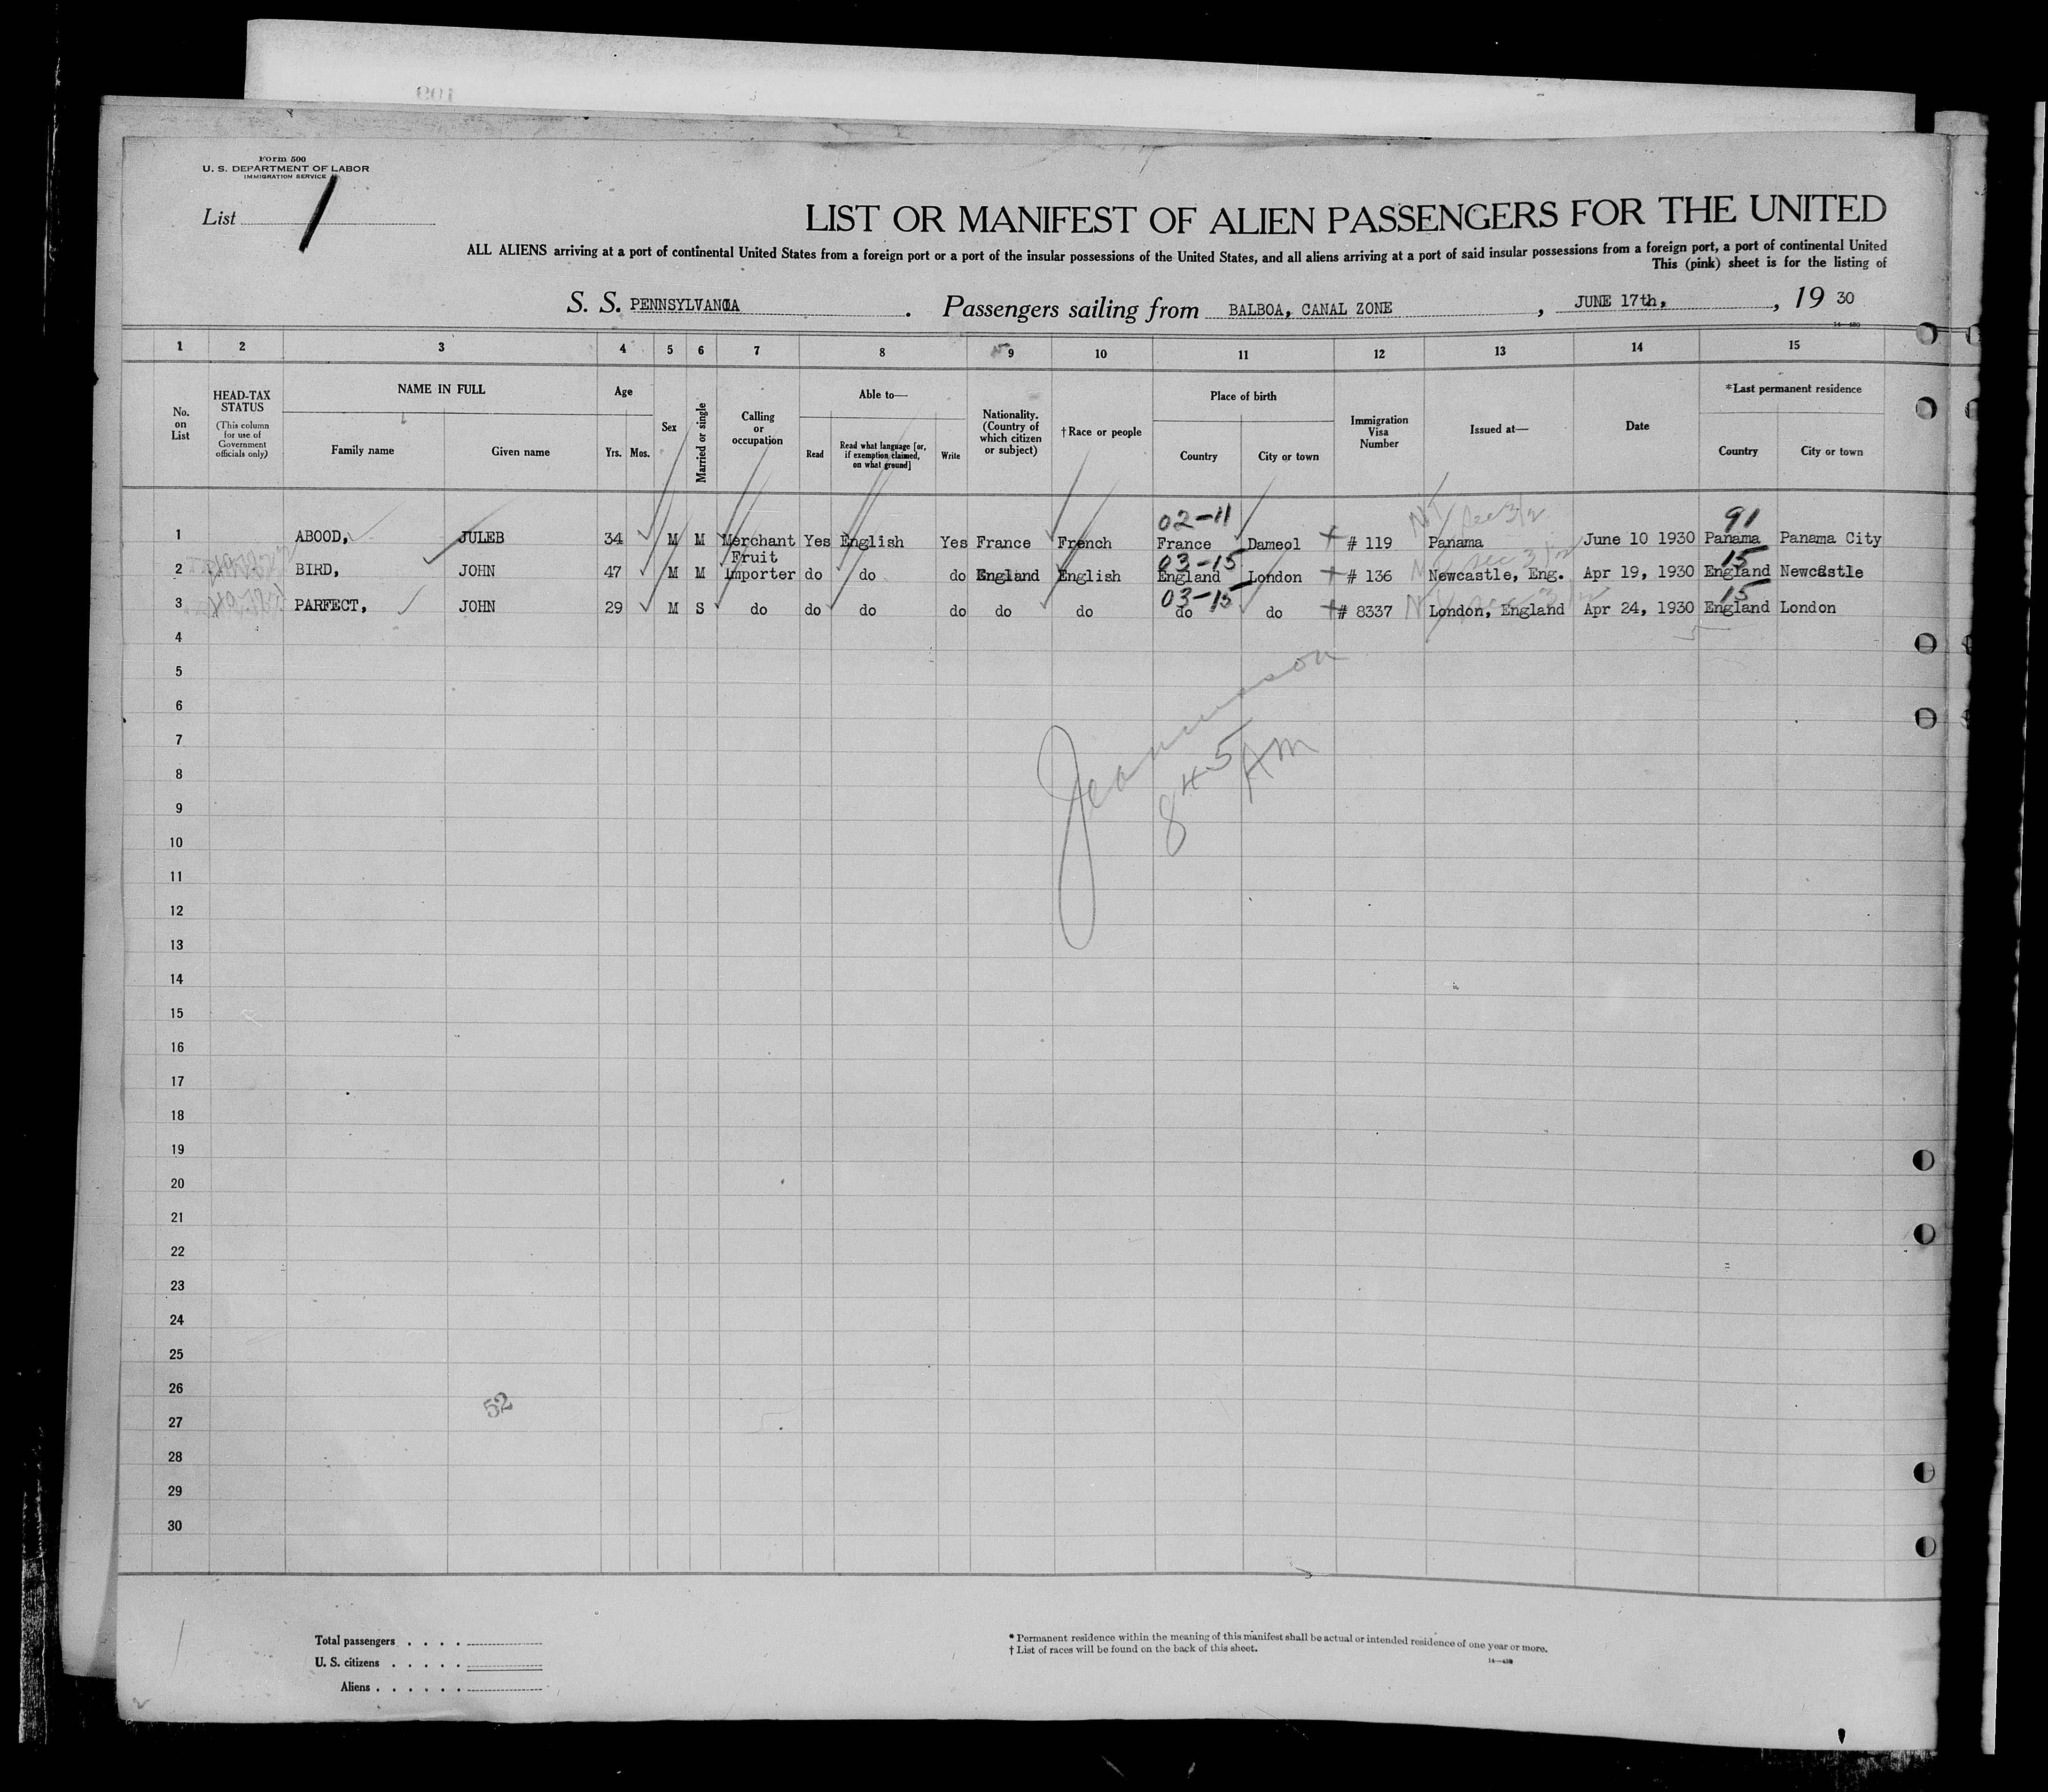 109
Form 500
U. S. DEPARTMENT OF LABOR
IMMIGRATION SERVICE
List 1
LIST OR MANIFEST OF ALIEN PASSENGERS FOR THE UNITED
ALL ALIENS arriving at a port of continental United States from a foreign port or a port of the insular possessions of the United States, and all aliens arriving at a port of said insular possessions from a foreign port, a port of continental United
This (pink) sheet is for the listing of
S. S. PENNSYLVANIA . Passengers sailing from BALBOA, CANAL ZONE , JUNE 17th, , 19 30
14—430
1 2 3 4 5 6 7 8 9 10 11 12 13 14 15
No. on List
HEAD-TAX STATUS (This column for use of Government officials only)
NAME IN FULL
Family name Given name
Age
Yrs. Mos.
Sex
Married or single
Calling or occupation
Able to—
Read Read what language [or, if exemption claimed, on what ground] Write
Nationality. (Country of which citizen or subject)
†Race or people
Place of birth
Country City or town
Immigration Visa Number
Issued at—
Date
*Last permanent residence
Country City or town
02-11 NY Sec 3/2 91
1 ABOOD, JULEB 34 M M Merchant Yes English Yes France French France Dameol # 119 Panama June 10 1930 Panama Panama City
Fruit 03-15 Sec 3/2 15
2 BIRD, JOHN 47 M M Importer do do do England English England London # 136 Newcastle, Eng. Apr 19, 1930 England Newcastle
03-15 NY Sec 3/2 15
3 PARFECT, JOHN 29 M S do do do do do do do do # 8337 London, England Apr 24, 1930 England London
4
5
6
7
8
9
10
11
12
13
14
15
16
17
18
19
20
21
22
23
24
25
26
27
28
29
30
845 AM
52
Total passengers . . . .
U. S. citizens . . . . .
Aliens . . . . . .
* Permanent residence within the meaning of this manifest shall be actual or intended residence of one year or more.
† List of races will be found on the back of this sheet.
14—430